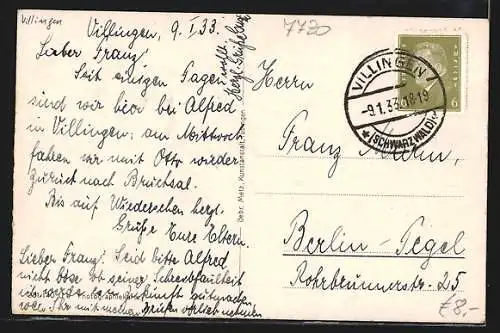 Villingen
7730
Villingen, 9. I. 33.
Lieber Franz!
Seit einigen Tagen
sind wir hier bei Alfred
in Villingen; am Mittwoch
fahren wir mit Otto wieder
zurück nach Bruchsal.
Bis auf Wiedersehen herzl.
Grüße Eure Eltern.
Lieber Franz! Seid bitte Alfred
nicht böse ob seiner Schreibfaulheit
ich werde
wollt Ihr mit meinen Grüßen vorlieb nehmen
Gebr. Metz, Kunstanstalt, Tübingen
VILLINGEN
-9.1.33.18-19
★(SCHWARZWALD)
6
Herrn
Franz
Berlin-Tegel
Rohrbrunnerstr. 25
€8,-